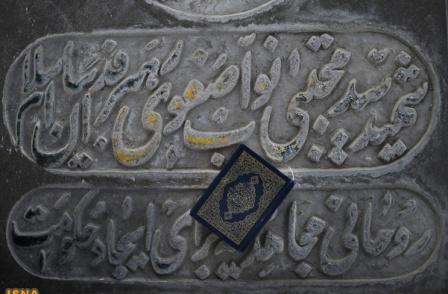 شهید سید مجتبی نواب صفوی رهبر فدائیان اسلام
روحانی مجاهد برای ایجاد حکومت
ISNA